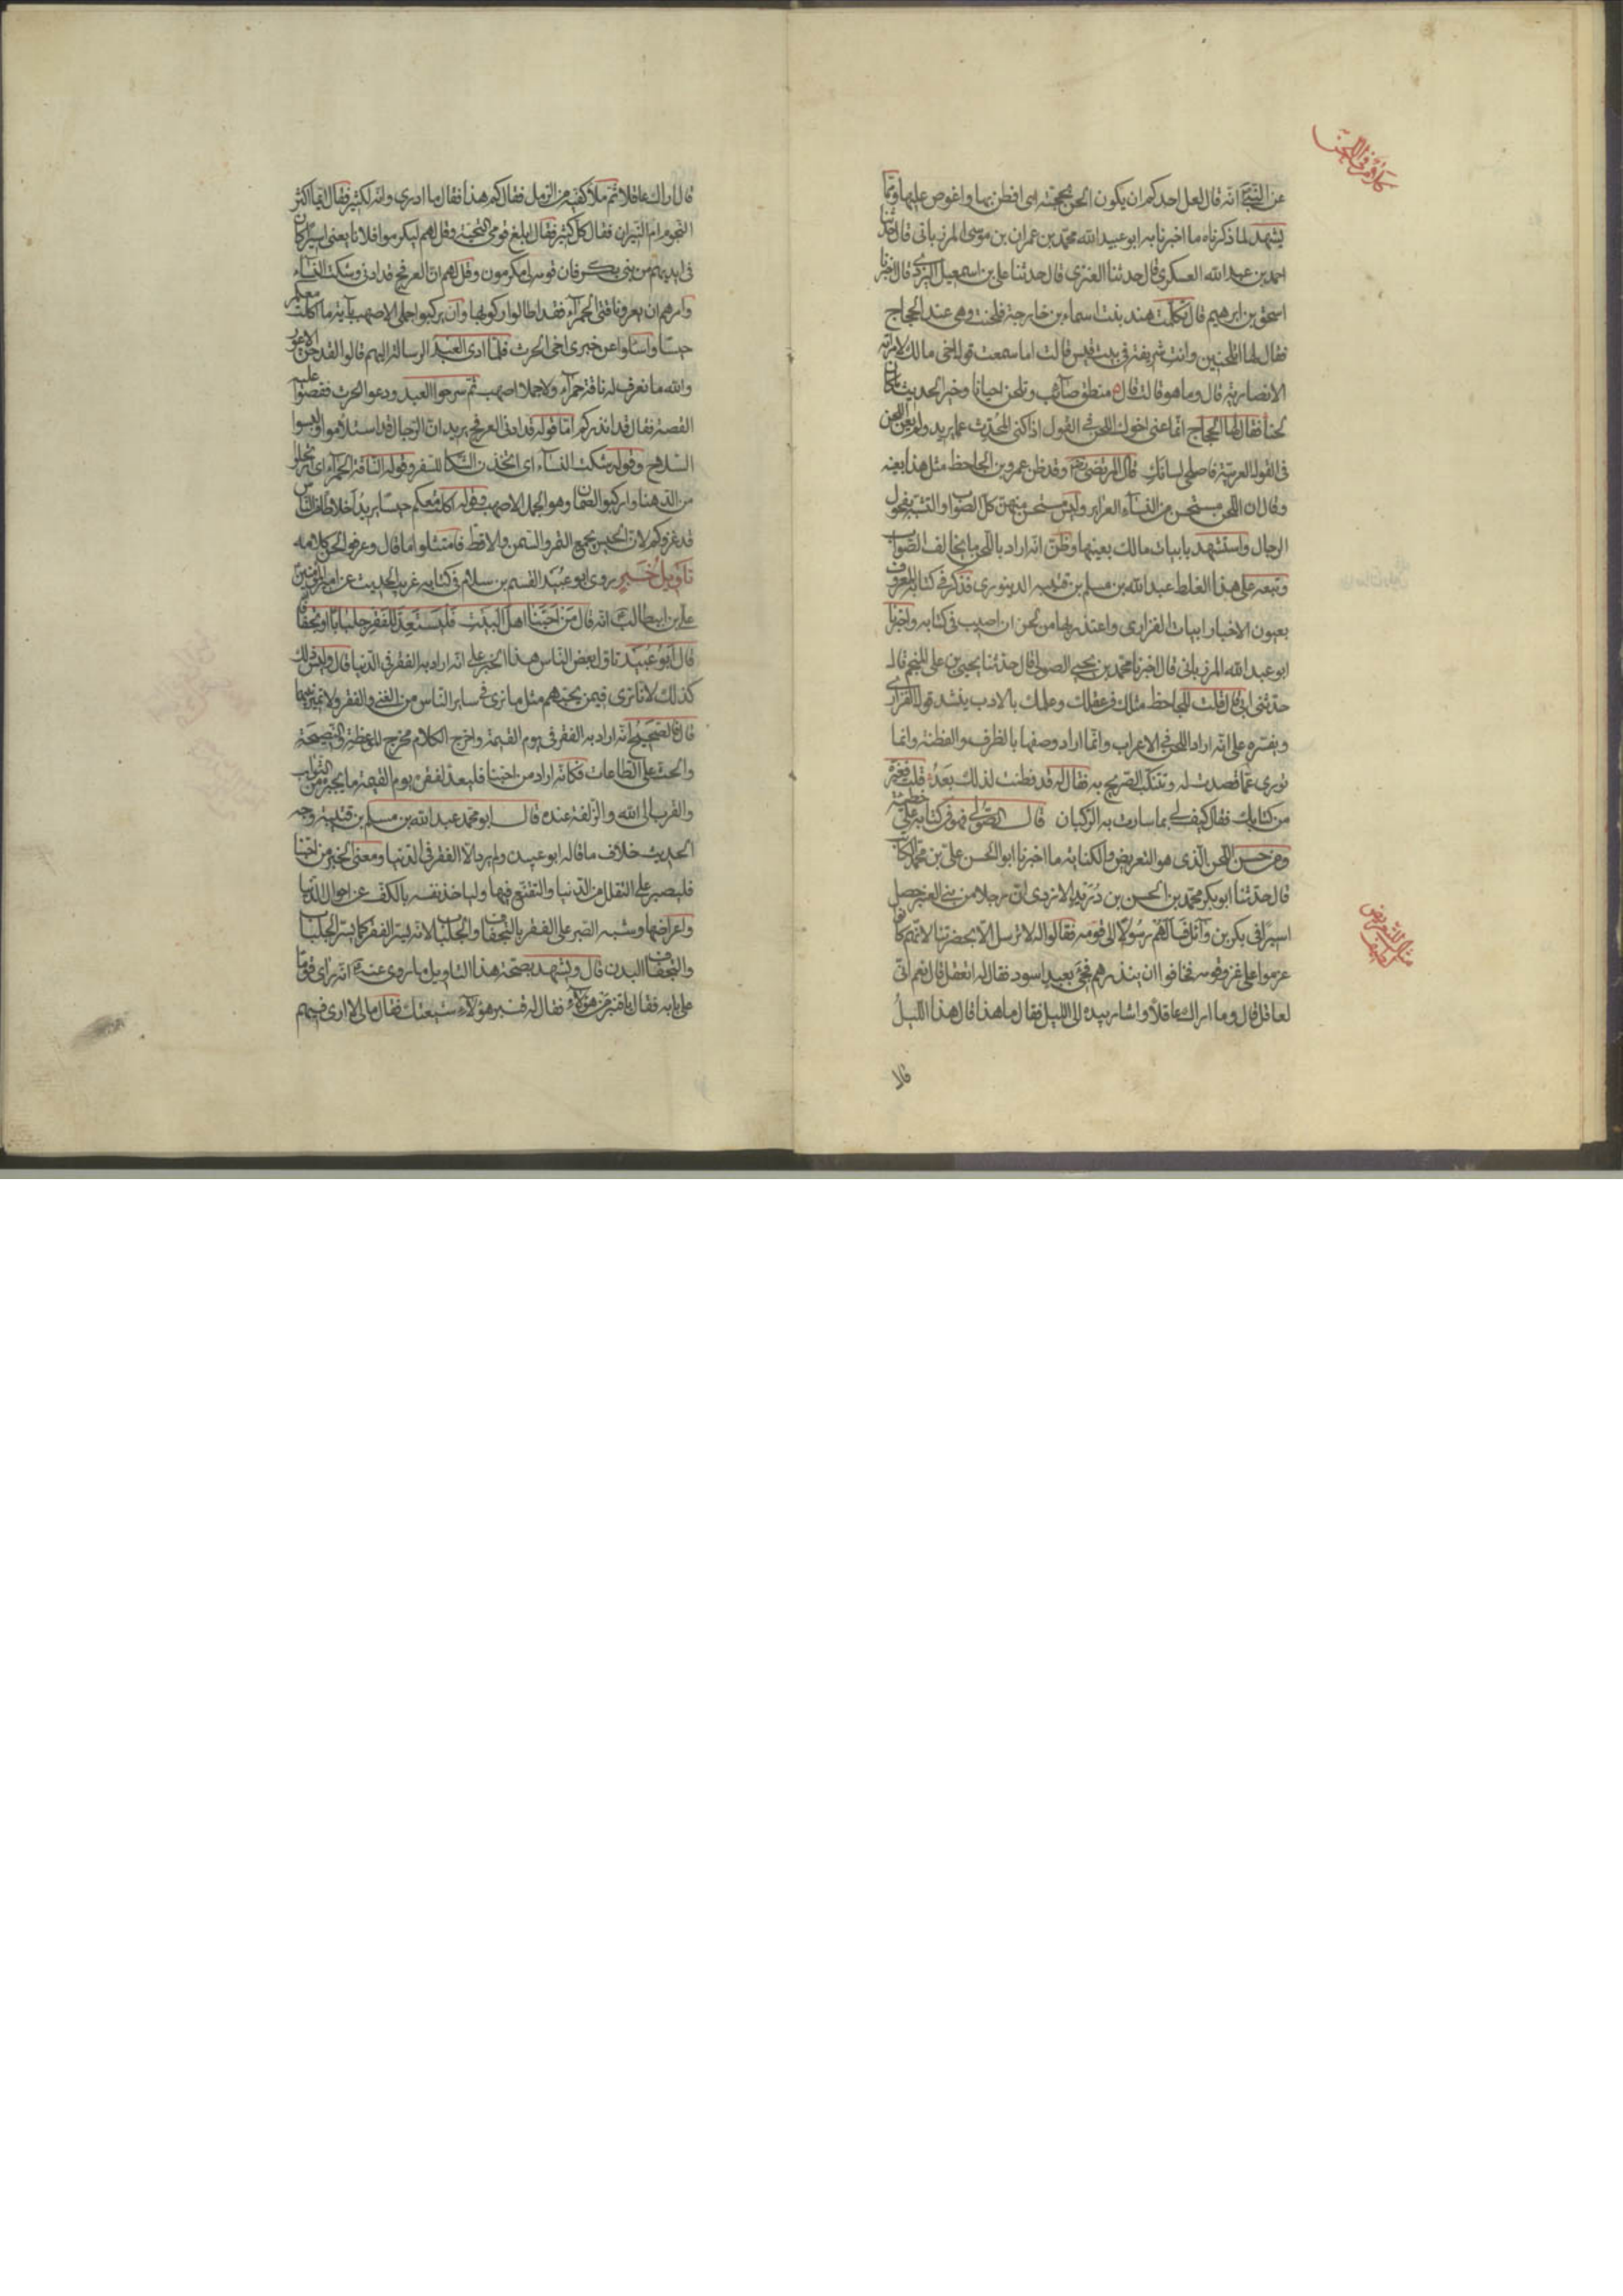 عن النبي انه قال لعل احدكم ان يكون الحن بحجته اى افطن بها واغوص عليها ومما
يشهد لما ذكرناه ما اخبرنا به ابو عبيد الله محمد بن عمران بن موسى المرزبانى قال حدثنا
احمد بن عبد الله العسكرى قال حدثنا العنزى قال حدثنا على بن اسمعيل اليزيدى قال اخبرنا
اسحق بن ابرهيم قال تكلمت هند بنت اسماء بن خارجة فلحنت وهى عند الحجاج
فقال لها اتلحنين وانت شريفة فى بيت قيس قالت اما سمعت قول اخى مالك لامراته
الانصارية قال وما هو قالت قال منطق صائب وتلحن احيانا وخير الحديث ما كان
لحنا فقال لها الحجاج انما عنى اخوك اللحن فى القول اذا كنى المحدث عما يريد ولم يعن اللحن
فى القول العربية فاصلحى لسانك قال المرتضى وقد ظن عمرو بن الجاحظ مثل هذا بعينه
وقال ان اللحن مستحسن من النساء الغراير وليس مستحسن منهن كل الصواب والتشبه بفحول
الرجال واستشهد بابيات مالك بعينها وظن انه اراد باللحن ما يخالف الصواب
وتبعه على هذا الغلط عبد الله بن مسلم بن قتيبه الدينورى فذكر فى كتابه المعروف
بعيون الاخبار ابيات الفزارى واعتذر بها من لحن ان اصيب فى كتابه واخبرنا
ابو عبد الله المرزبانى قال اخبرنا محمد بن يحيى الصولى قال حدثنا يحيى بن على المنجم قال
حدثنى ابى قال قلت للجاحظ مثلك فى عقلك وعلمك بالادب ينشد قول الفزارى
ويفسره على انه اراد اللحن فى الاعراب وانما اراد وصفها بالظرف والفطنة وانما
تورى عما قصدت له وتتنكب التصريح به فقال له قد فطنت لذلك بعد قلت فغيره
من كتابك فقال كيف لى بما سارت به الركبان قال الصولى فهو فى كتابه على خطيئته
ومن حسن اللحن الذى هو التعريض والكناية ما اخبرنا ابو الحسن على بن محمد الكاتب
قال حدثنا ابو بكر محمد بن الحسن بن دريد الازدى ان رجلا من بنى العنبر حصل
اسيرا فى بكر بن وائل فسالهم رسولا الى قومه فقالوا له لا ترسل الا بحضرتنا لانهم كانوا
عزموا على غزو قومه فخافوا ان ينذرهم فجئ بعبد اسود فقال له اتعقل قال نعم انى
لعاقل قال وما اراك عاقلا واشار بيده الى الليل فقال ما هذا قال هذا الليل
قال
قال اراك عاقلا ثم ملأ كفيه من الرمل فقال كم هذا فقال ما ادرى وانه لكثير فقال ايما اكثر
النجوم ام النيران فقال كل كثير فقال ابلغ قومى التحية وقل لهم ليكرموا فلانا يعنى اسيرا كان
فى ايديهم من بنى بكر فان قومه لى مكرمون وقل لهم ان العرفج قد ادبى وشكت النساء
وامرهم ان يعروا ناقتى الحمراء فقد اطالوا ركوبها وان يركبوا جملى الاصهب بآية ما اكلت معكم
حيسا واسئلوا عن خبرى اخى الحرث فلما ادى العبد الرسالة اليهم قالوا لقد جن الاعور
والله ما نعرف له ناقة حمراء ولا جملا اصهب ثم سرحوا العبد ودعوا الحرث فقصوا عليه
القصة فقال قد انذركم اما قوله قد ادبى العرفج يريد ان الرجال قد استلاموا ولبسوا
السلاح وقوله شكت النساء اى اتخذن الشكا للسفر وقوله الناقة الحمراء اى ارتحلوا
من الدهنا واركبوا الصمان وهو الجمل الاصهب وقوله اكلت معكم حيسا يريد اخلاطا من الناس
قد غزوكم لان الحيس يجمع التمر والسمن والاقط فامتثلوا ما قال وعرفوا لحن كلامه
تأويل خبر روى ابو عبيد القسم بن سلام فى كتابه غريب الحديث عن امير المؤمنين
على بن ابيطالب انه قال من احبنا اهل البيت فليستعد للفقر جلبابا او تجفافا
قال ابو عبيد تاول بعض الناس هذا الخبر على انه اراد به الفقر فى الدنيا قال وليس ذلك
كذلك لانا نرى فيمن يحبهم مثل ما نرى فى سائر الناس من الغنى والفقر ولا تميز بينهما
قال والصحيح انه اراد به الفقر فى يوم القيمة واخرج الكلام مخرج الموعظة والنصيحة
والحث على الطاعات فكانه اراد من احبنا فليعد لفقره يوم القيمة ما يجبره من الثواب
والقرب الى الله والزلفة عنده قال ابو محمد عبد الله بن مسلم بن قتيبة وجه
الحديث خلاف ما قاله ابو عبيد ولم يرد الا الفقر فى الدنيا ومعنى الخبر من احبنا
فليصبر على التقلل من الدنيا والتقنع فيها وليأخذ نفسه بالكف عن احوال الدنيا
واعراضها وشبه الصبر على الفقر بالتجفاف والجلباب لانه يستر الفقر كما يستر الجلباب
والتجفاف البدن قال ويشهد بصحة هذا التاويل ما روى عنه انه راى قوما
على بابه فقال يا قنبر من هؤلاء فقال له قنبر هؤلاء شيعتك فقال ما لى لا ارى فيهم